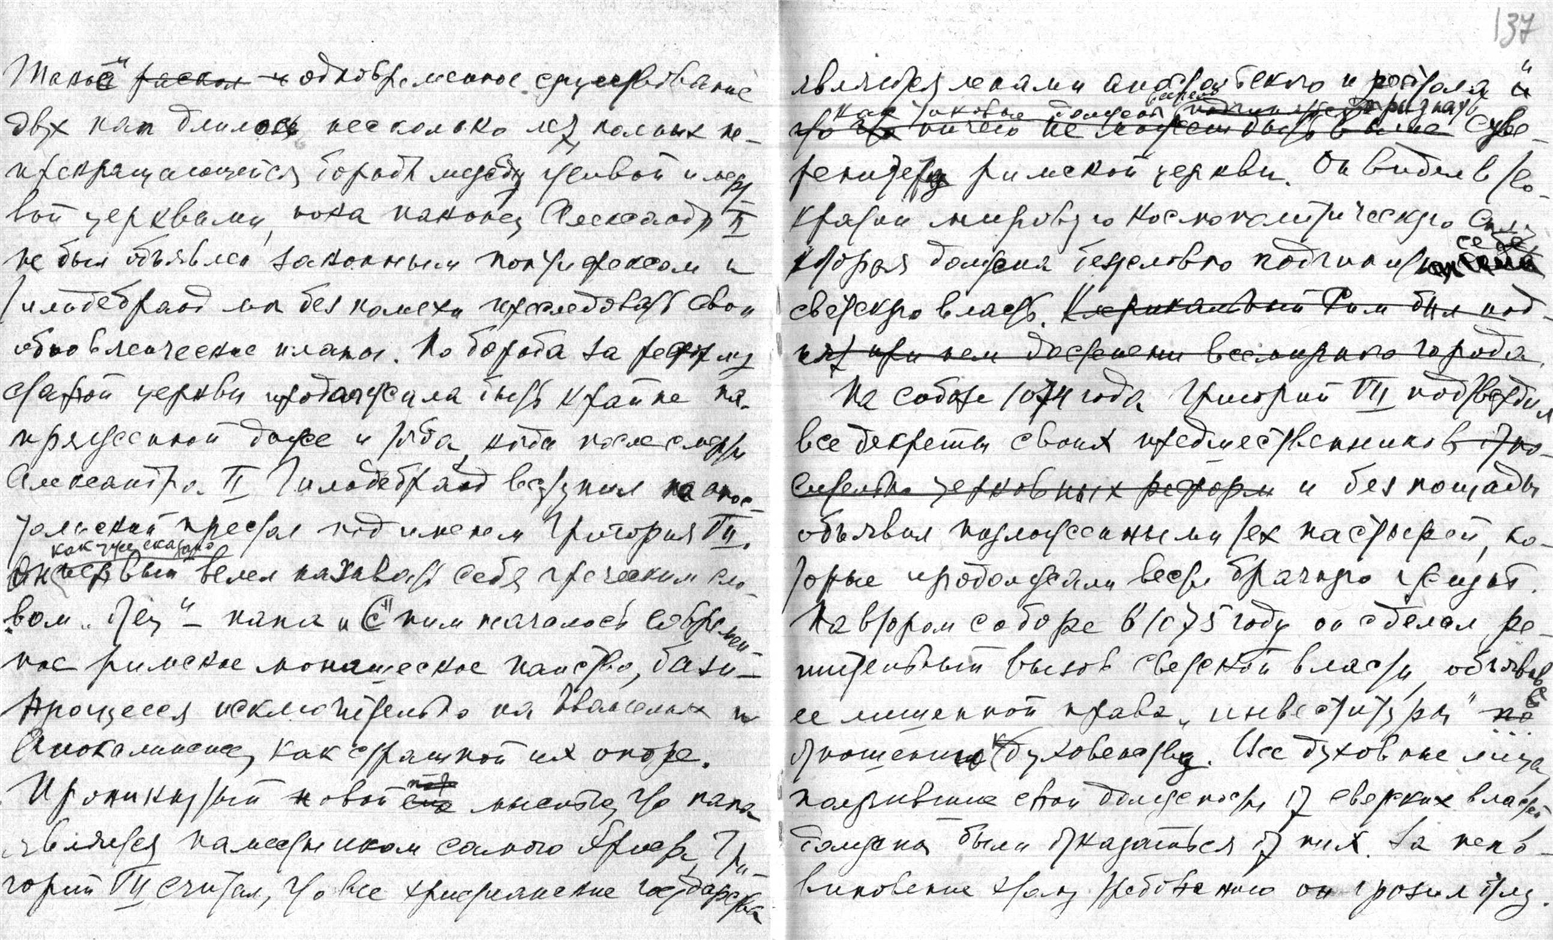 137
Такой раскол – одновременное существование
двух пап длилось несколько лет полных не-
прекращающейся борьбы между и
вой церквами, пока наконец Александр II
не был объявлен законным понтифексом и
Гильдебранд мог без помехи преследовать свои
обновленческие планы. Но борьба за реформу
старой церкви продолжала быть крайне на-
пряженной даже и тогда, когда после смерти
Александра II Гильдебранд вступил на апос-
тольский престол под именем Григория VII.
как уже сказано
Он первый велел называть себя греческим сло-
вом „отец" – папа и с ним началось современ-
ное римское монашеское папство, бази-
рующееся исключительно на Евангелиях и
Апокалипсисе, как страшной их опоре.
Проникнутый новой мыслью, что папа
является наместником самого Христа, Гри-
горий VII считал, что все христианские государства
являются ленами апостольского престола и
что как таковые должны признать
ничего не может быть выше суве-
ренитету римской церкви. Он видел в тео-
кратии мировую космополитическую силу,
которая должна безусловно подчинить себе
светскую власть. Клерикальный Рим был под-
нят при нем до степени всемирного города.
На соборе 1074 года Григорий VII подтвердил
все декреты своих предшественников отно-
сительно церковных реформ и без пощады
объявил низложенными тех пастырей, ко-
торые продолжали вести брачную жизнь.
На втором соборе в 1075 году он сделал ре-
шительный вызов светской власти, объявив
ее лишенной права „инвеституры" по
отношению к духовенству. Все духовные лица,
получившие свои должности от светских властей
должны были отказаться от них. За непо-
виновение этому требованию он грозил отлу-